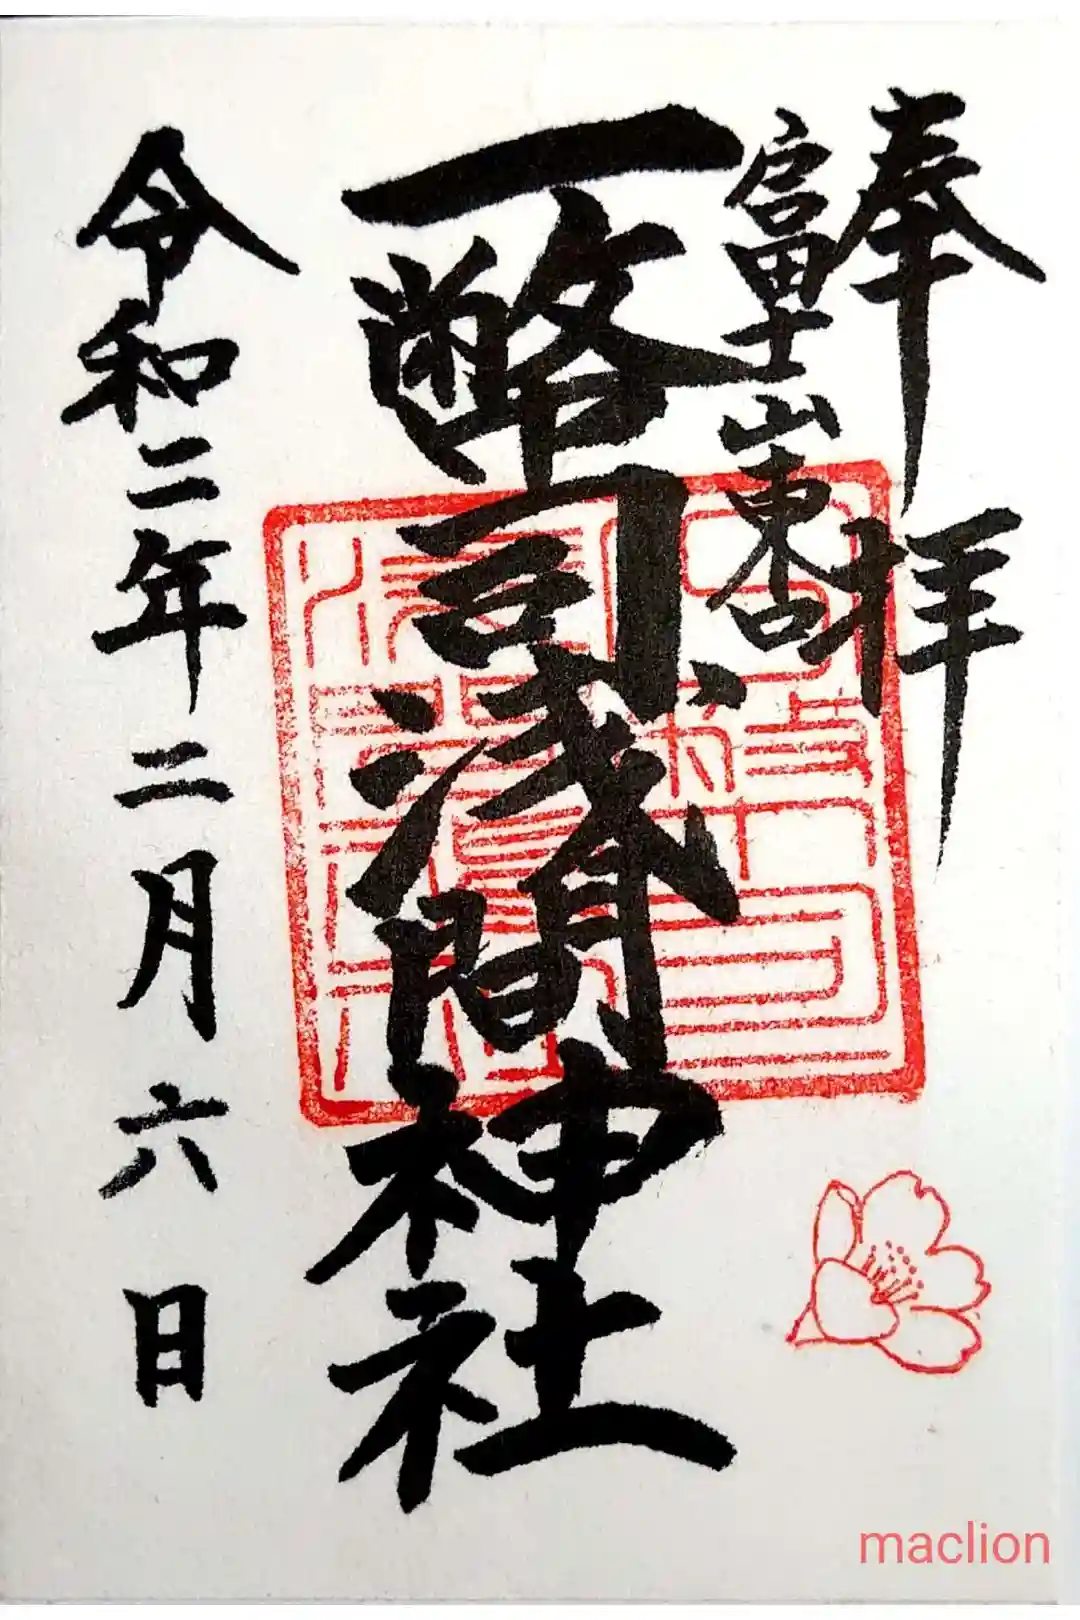 奉拝
富士山東口
一幣司浅間神社
令和二年二月六日
maclion